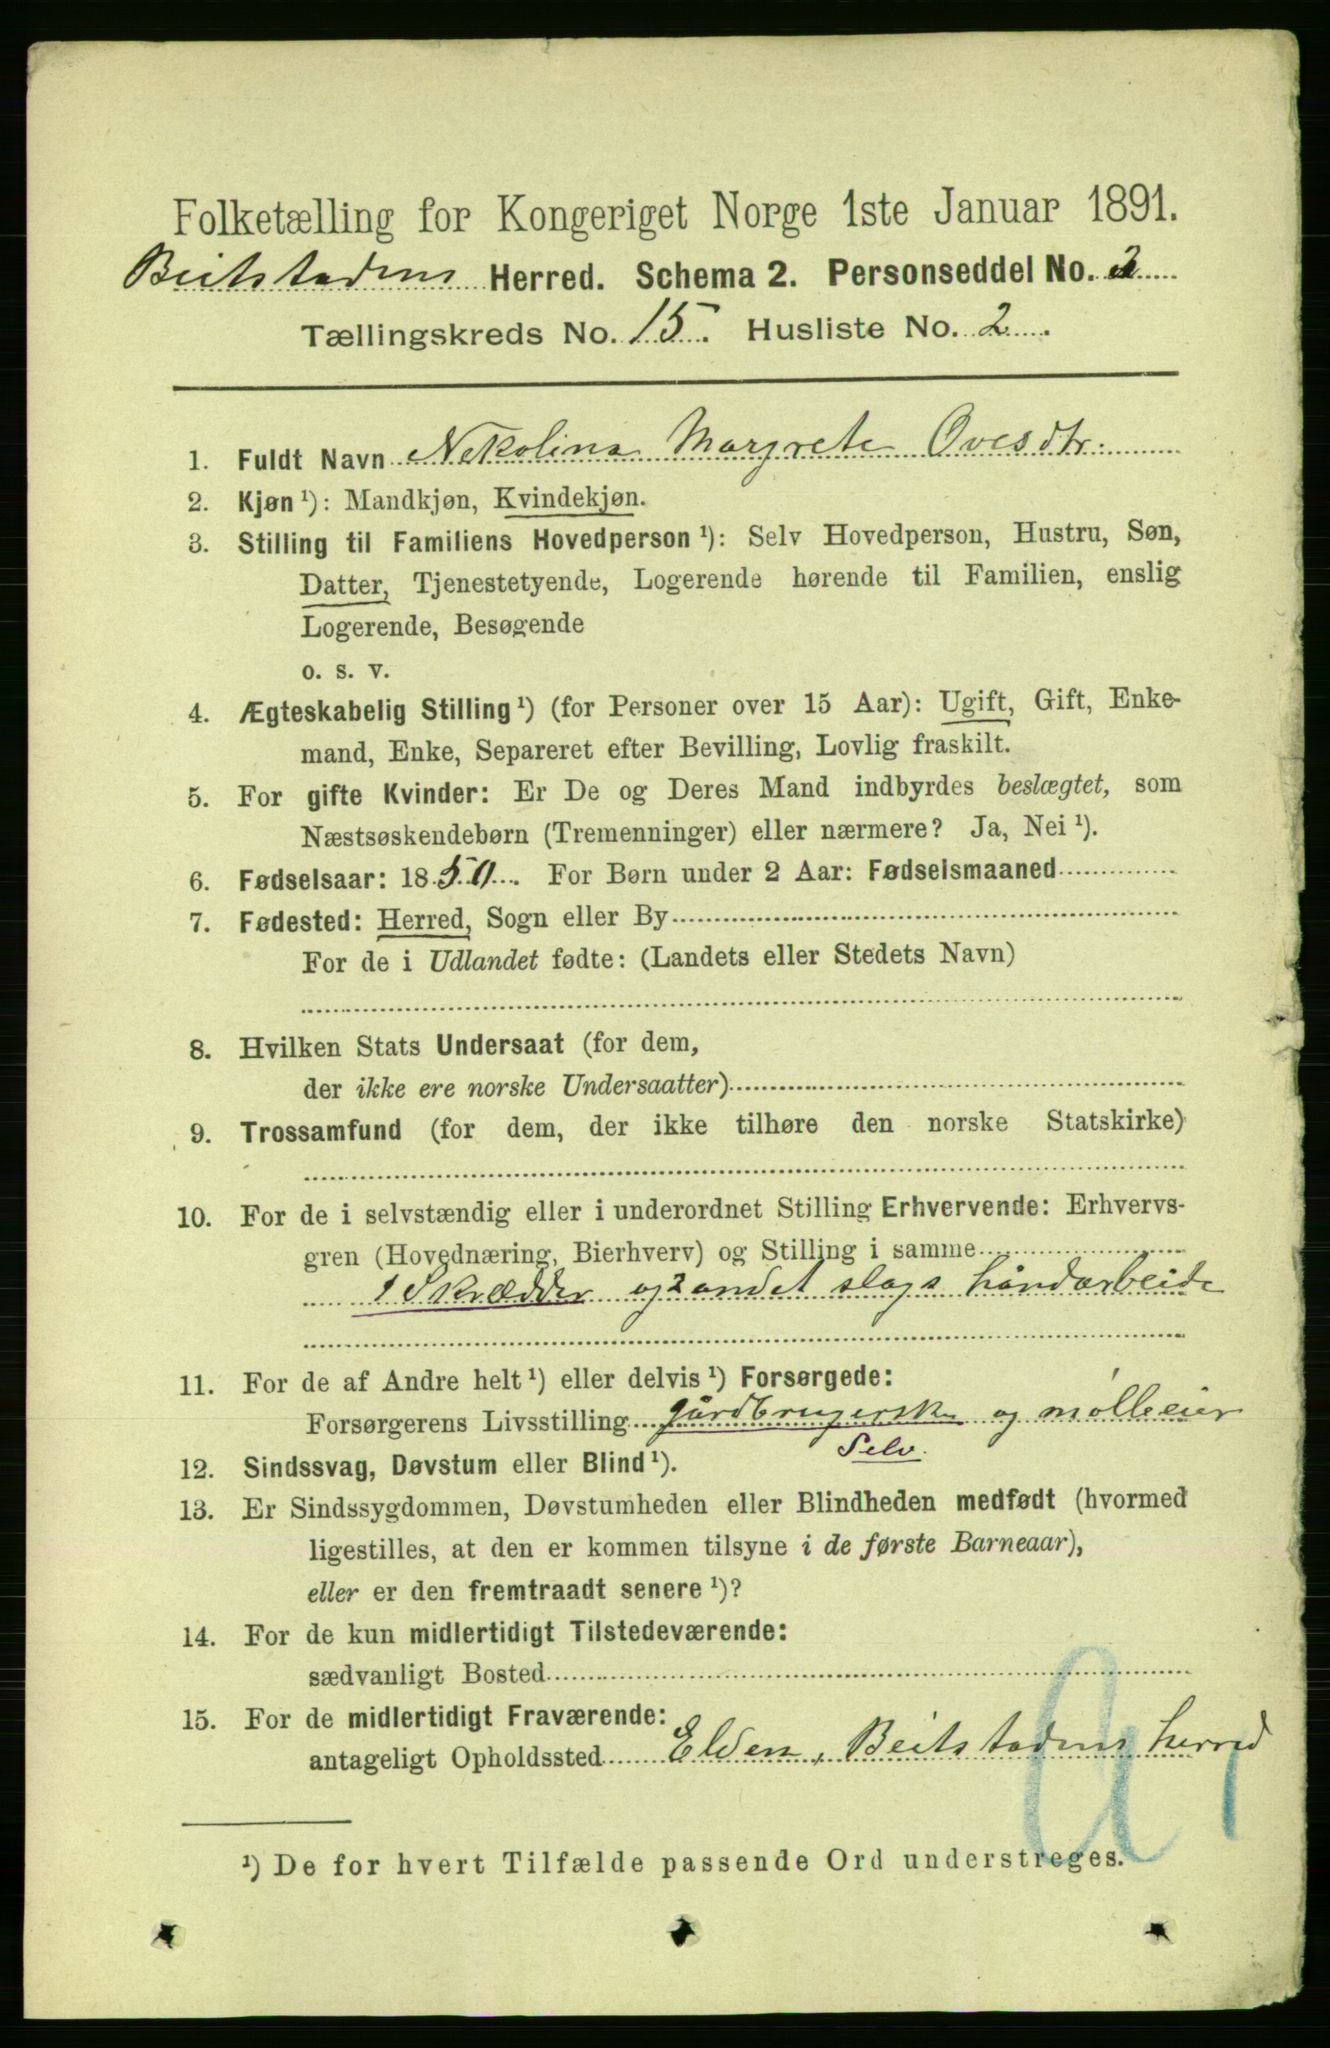 Folketælling for Kongeriget Norge 1ste Januar 1891.
Beitstadens Herred. Schema 2. Personseddel No. 2
Tællingskreds No. 15. Husliste No. 2.
1. Fuldt Navn Nekolina Margrete Ovesdtr.
2. Kjøn ¹): Mandkjøn, Kvindekjøn.
3. Stilling til Familiens Hovedperson ¹): Selv Hovedperson, Hustru, Søn,
Datter, Tjenestetyende, Logerende hørende til Familien, enslig
Logerende, Besøgende
o. s. v.
4. Ægteskabelig Stilling ¹) (for Personer over 15 Aar): Ugift, Gift, Enke-
mand, Enke, Separeret efter Bevilling, Lovlig fraskilt.
5. For gifte Kvinder: Er De og Deres Mand indbyrdes beslægtet, som
Næstsøskendebørn (Tremenninger) eller nærmere? Ja, Nei ¹).
6. Fødselsaar: 1850. For Børn under 2 Aar: Fødselsmaaned
7. Fødested: Herred, Sogn eller By
For de i Udlandet fødte: (Landets eller Stedets Navn)
8. Hvilken Stats Undersaat (for dem,
der ikke ere norske Undersaatter)
9. Trossamfund (for dem, der ikke tilhøre den norske Statskirke)
10. For de i selvstændig eller i underordnet Stilling Erhvervende: Erhvervs-
gren (Hovednæring, Bierhverv) og Stilling i samme
1 Skrædder og 2 andet slags håndarbeide
11. For de af Andre helt ¹) eller delvis ¹) Forsørgede:
Forsørgerens Livsstilling gårdbrugerske og mølleeier
Selv.
12. Sindssvag, Døvstum eller Blind ¹).
13. Er Sindssygdommen, Døvstumheden eller Blindheden medfødt (hvormed
ligestilles, at den er kommen tilsyne i de første Barneaar),
eller er den fremtraadt senere ¹)?
14. For de kun midlertidigt Tilstedeværende:
sædvanligt Bosted
15. For de midlertidigt Fraværende:
antageligt Opholdssted Elden, Beitstadens herred
¹) De for hvert Tilfælde passende Ord understreges.